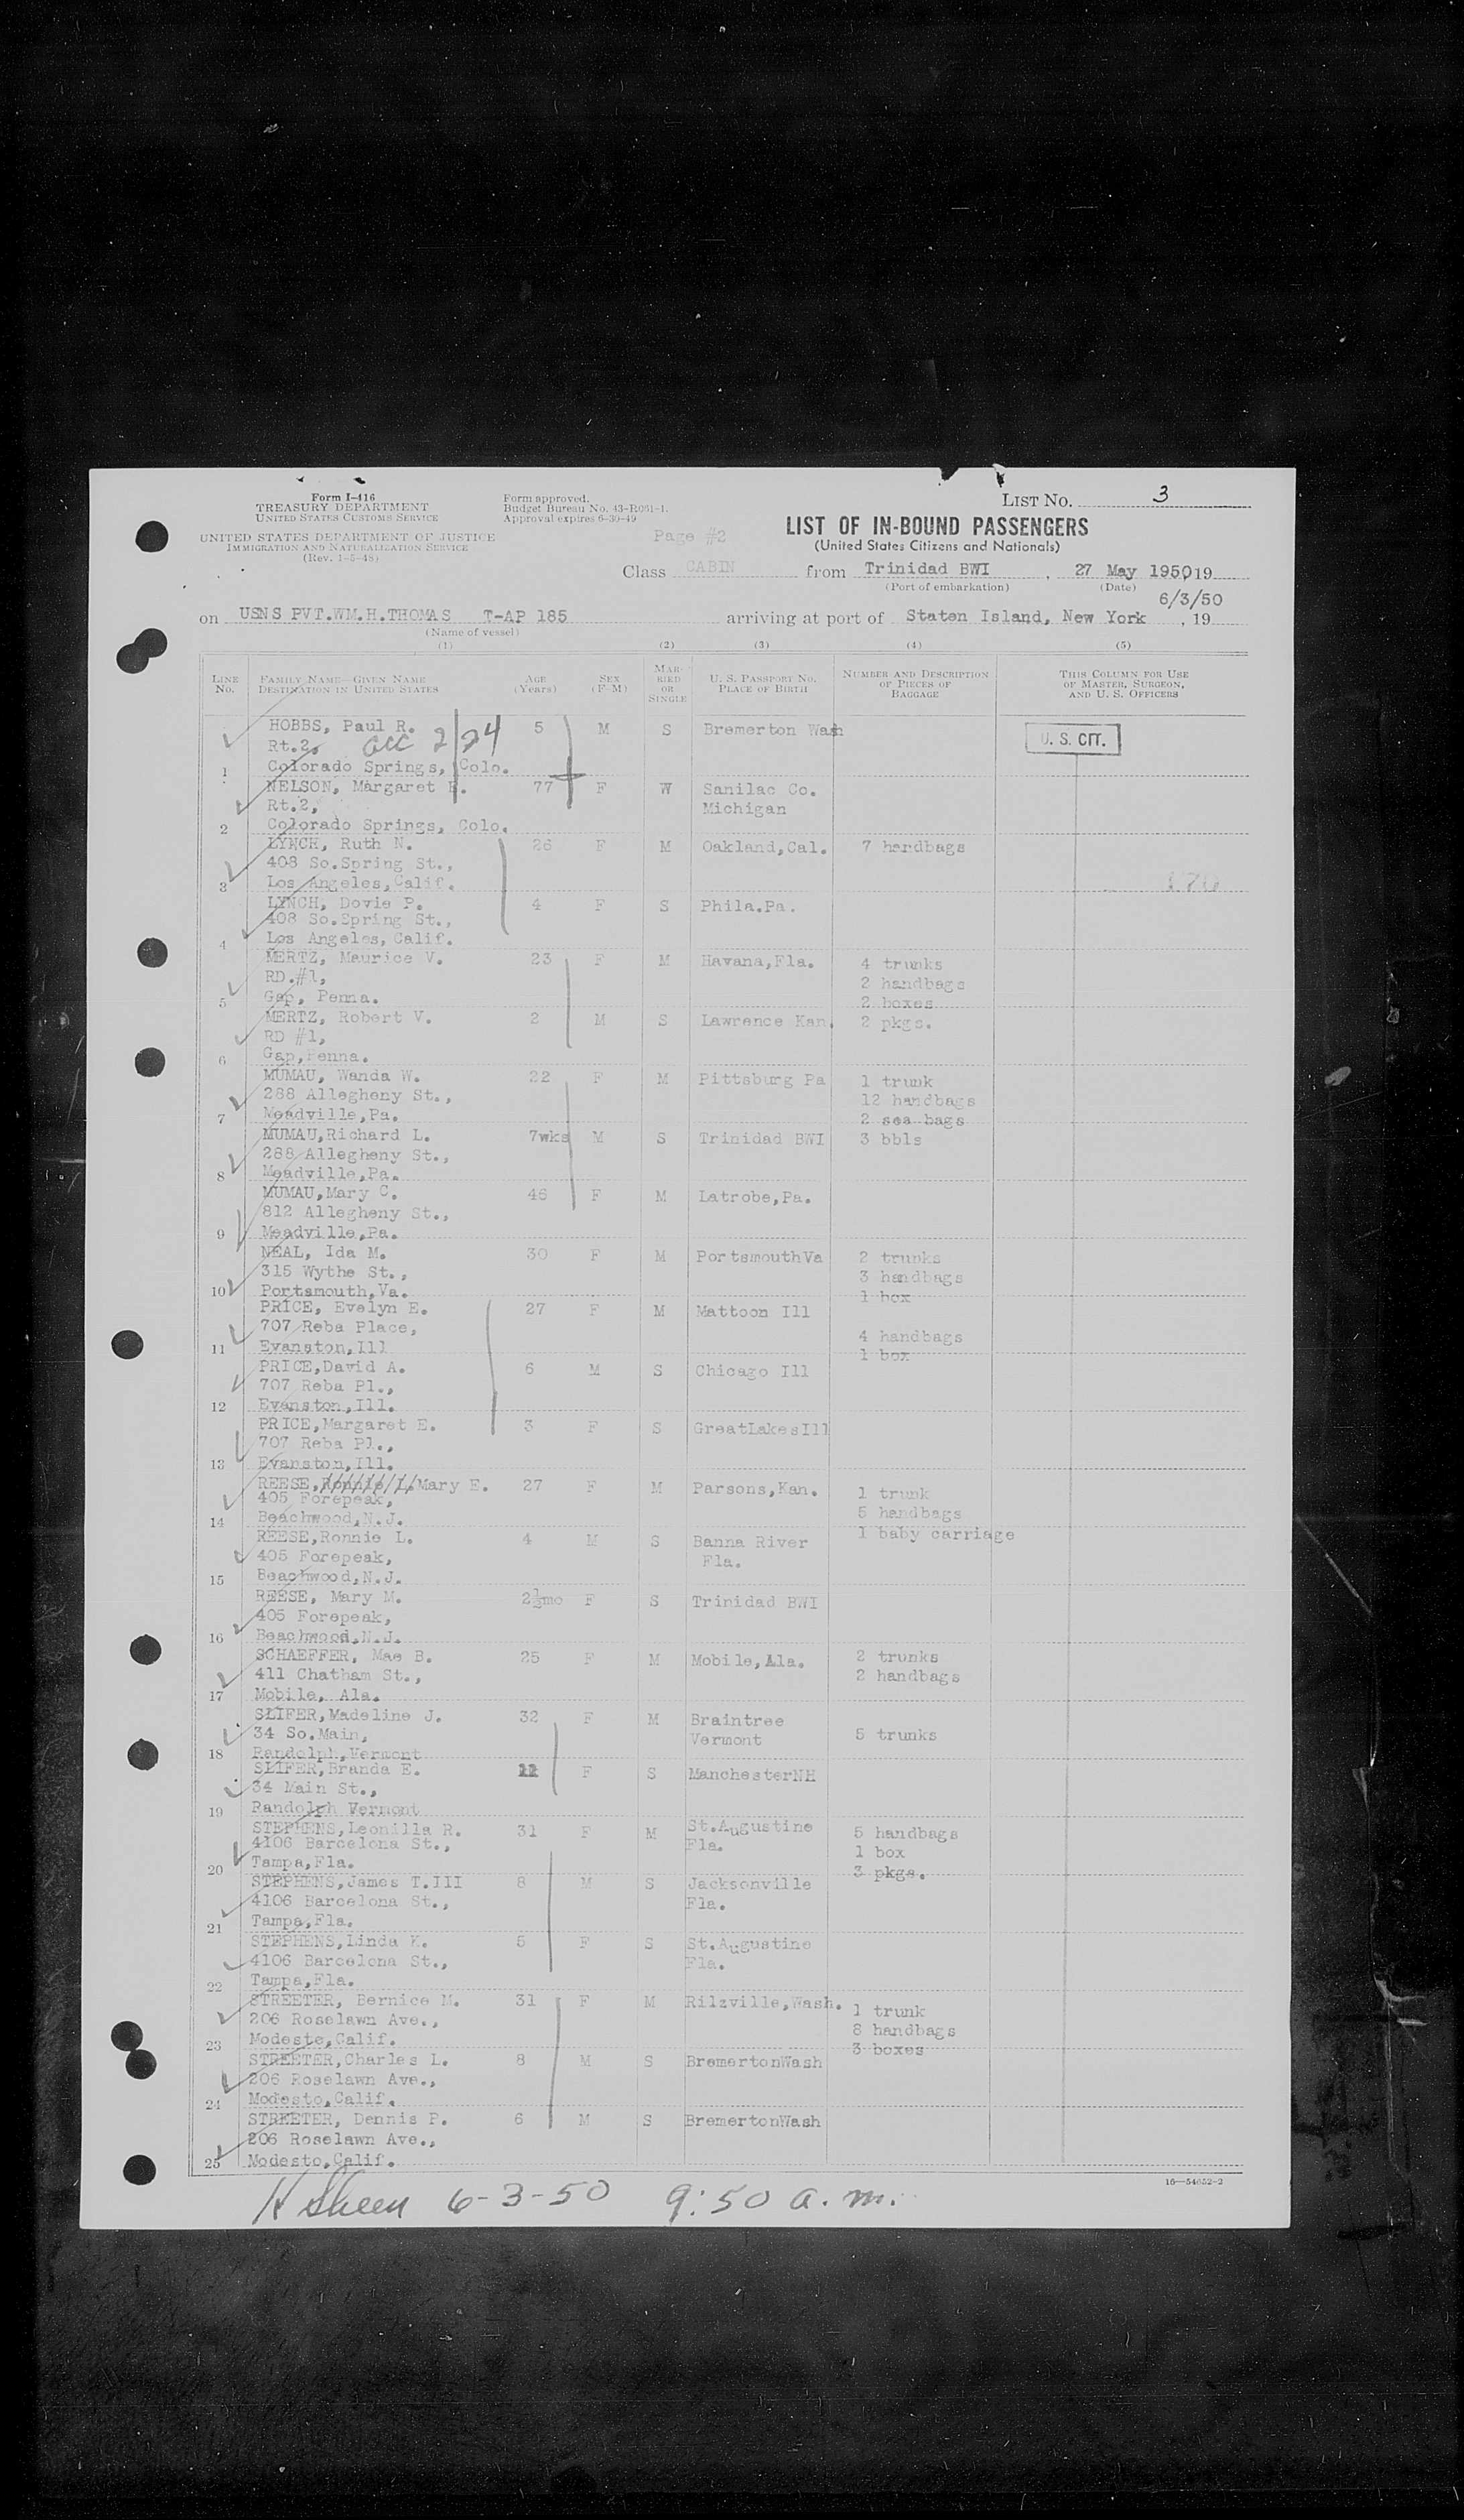 Form I-416
TREASURY DEPARTMENT
UNITED STATES CUSTOMS SERVICE
UNITED STATES DEPARTMENT OF JUSTICE
IMMIGRATION AND NATURALIZATION SERVICE
(Rev. 1-5-48)
Form approved.
Budget Bureau No. 43-R061-1.
Approval expires 6-30-49
Page #2
LIST NO. 3
LIST OF IN-BOUND PASSENGERS
(United States Citizens and Nationals)
Class CABIN from Trinidad BWI , 27 May 1950, 19
(Port of embarkation) (Date)
6/3/50
on USNS PVT.WM.H.THOMAS T-AP 185 arriving at port of Staten Island, New York , 19
(Name of vessel)
(1) (2) (3) (4) (5)
LINE NO. FAMILY NAME—GIVEN NAME DESTINATION IN UNITED STATES AGE (Years) SEX (F-M) MARRIED OR SINGLE U. S. PASSPORT NO. PLACE OF BIRTH NUMBER AND DESCRIPTION OF PIECES OF BAGGAGE THIS COLUMN FOR USE OF MASTER, SURGEON, AND U. S. OFFICERS
HOBBS, Paul R. 5 M S Bremerton Wash U. S. CIT.
Rt.2, acc 2/24
1 Colorado Springs, Colo.
NELSON, Margaret E. 77 F W Sanilac Co.
Rt.2, Michigan
2 Colorado Springs, Colo.
LYNCH, Ruth N. 26 F M Oakland,Cal. 7 handbags
408 So.Spring St.,
3 Los Angeles,Calif.
LYNCH, Dovie P. 4 F S Phila.Pa.
408 So.Spring St.,
4 Los Angeles, Calif.
MERTZ, Maurice V. 23 F M Havana,Fla. 4 trunks
RD.#1, 2 handbags
5 Gap, Penna. 2 boxes
MERTZ, Robert V. 2 M S Lawrence Kan. 2 pkgs.
RD #1,
6 Gap,Penna.
MUMAU, Wanda W. 22 F M Pittsburg Pa 1 trunk
288 Allegheny St., 12 handbags
7 Meadville,Pa. 2 sea bags
MUMAU,Richard L. 7wks M S Trinidad BWI 3 bbls
288 Allegheny St.,
8 Meadville,Pa.
MUMAU,Mary C. 46 F M Latrobe,Pa.
812 Allegheny St.,
9 Meadville,Pa.
NEAL, Ida M. 30 F M PortsmouthVa 2 trunks
315 Wythe St., 3 handbags
10 Portsmouth,Va. 1 box
PRICE, Evelyn E. 27 F M Mattoon Ill
707 Reba Place, 4 handbags
11 Evanston,Ill 1 box
PRICE,David A. 6 M S Chicago Ill
707 Reba Pl.,
12 Evanston,Ill.
PRICE,Margaret E. 3 F S GreatLakesIll
707 Reba Pl.,
13 Evanston,Ill.
REESE,Ronnie L.Mary E. 27 F M Parsons,Kan. 1 trunk
405 Forepeak, 5 handbags
14 Beachwood,N.J. 1 baby carriage
REESE,Ronnie L. 4 M S Banna River
405 Forepeak, Fla.
15 Beachwood,N.J.
REESE, Mary M. 2½mo F S Trinidad BWI
405 Forepeak,
16 Beachwood,N.J.
SCHAEFFER, Mae B. 25 F M Mobile,Ala. 2 trunks
411 Chatham St., 2 handbags
17 Mobile, Ala.
SLIFER,Madeline J. 32 F M Braintree
34 So.Main, Vermont 5 trunks
18 Randolph,Vermont
SLIFER,Branda E. 11 F S ManchesterNH
34 Main St.,
19 Randolph Vermont
STEPHENS,Leonilla R. 31 F M St.Augustine 5 handbags
4106 Barcelona St., Fla. 1 box
20 Tampa,Fla. 3 pkgs.
STEPHENS,James T.III 8 M S Jacksonville
4106 Barcelona St., Fla.
21 Tampa,Fla.
STEPHENS,Linda K. 5 F S St.Augustine
4106 Barcelona St., Fla.
22 Tampa,Fla.
STREETER, Bernice M. 31 F M Rilzville,Wash. 1 trunk
206 Roselawn Ave., 8 handbags
23 Modesto,Calif. 3 boxes
STREETER,Charles L. 8 M S BremertonWash
206 Roselawn Ave.,
24 Modesto,Calif.
STREETER, Dennis P. 6 M S BremertonWash
206 Roselawn Ave.,
25 Modesto,Calif.
16—54652-2
H Sheen 6-3-50 9:50 a.m.